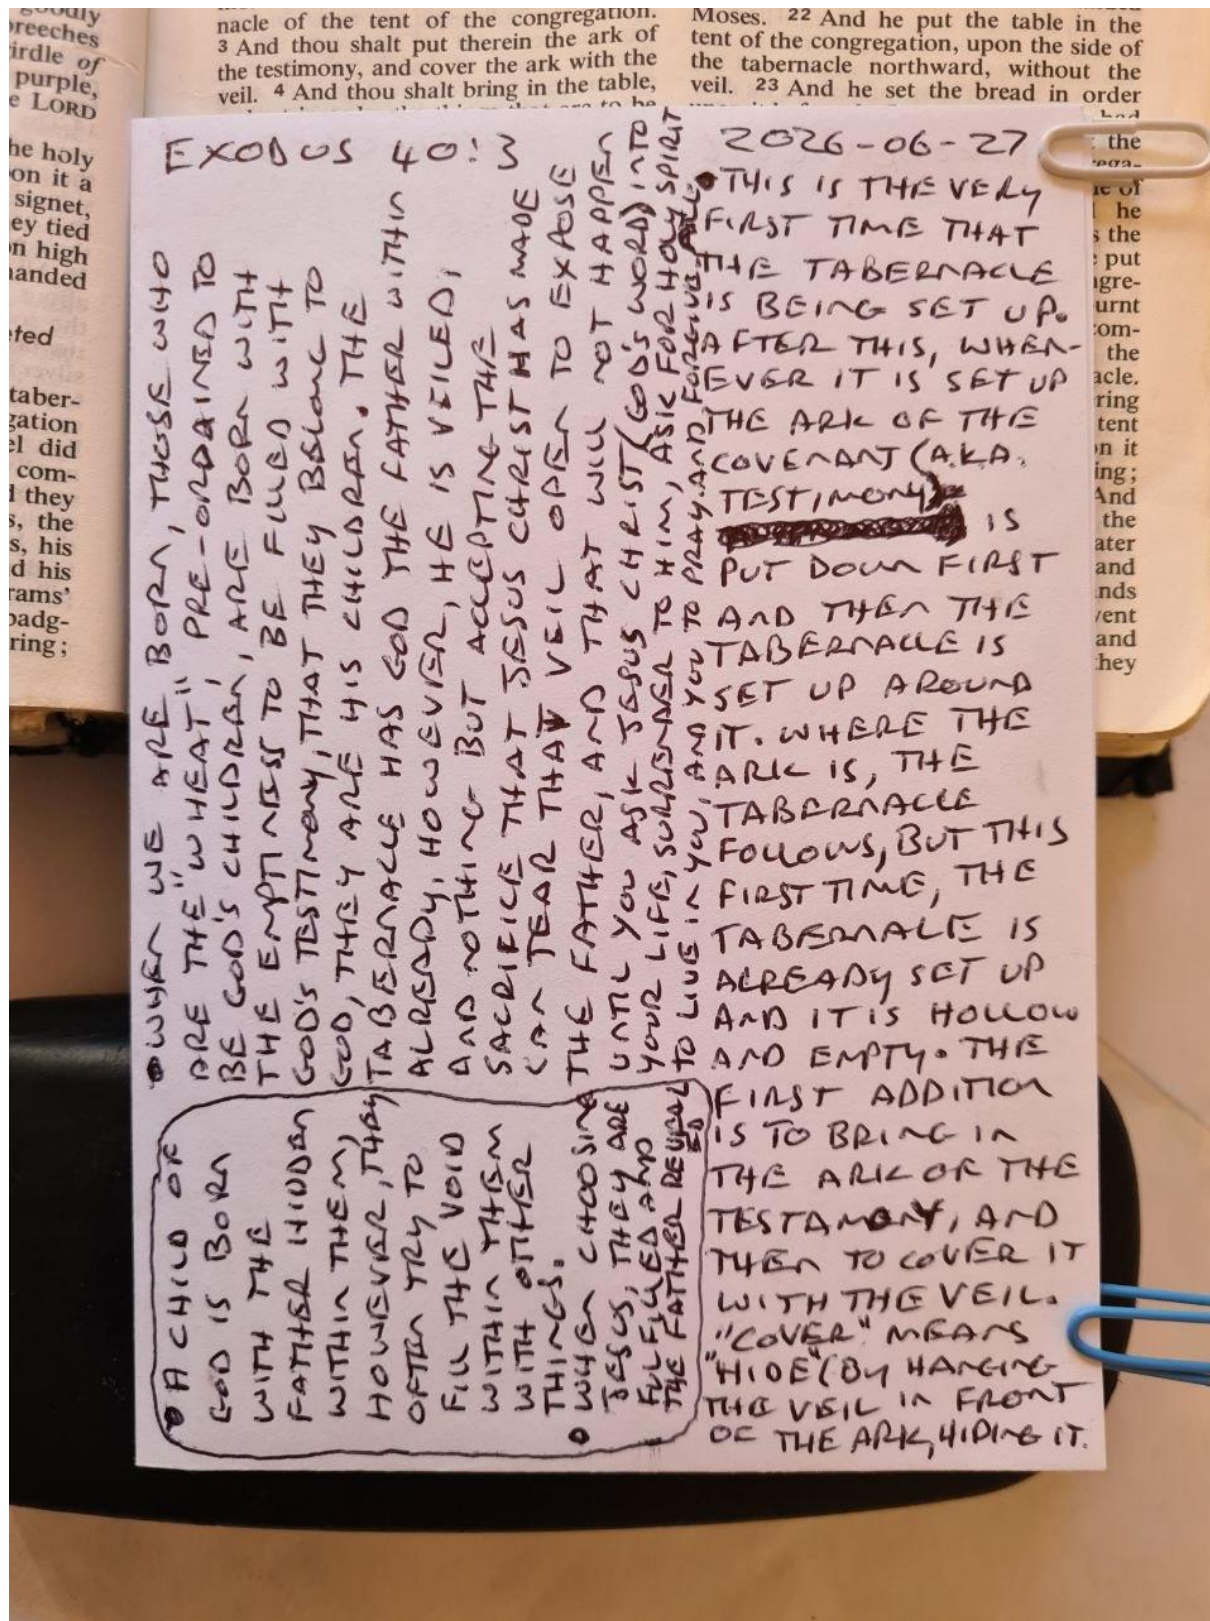 goodly
breeches
irdle of
purple,
e LORD
he holy
on it a
signet,
ey tied
on high
manded
eted
taber-
gation
el did
com-
they
s, the
s, his
d his
rams'
badg-
ring;
nacle of the tent of the congregation.
3 And thou shalt put therein the ark of
the testimony, and cover the ark with the
veil. 4 And thou shalt bring in the table,
Moses. 22 And he put the table in the
tent of the congregation, upon the side of
the tabernacle northward, without the
veil. 23 And he set the bread in order
had
the
rega-
he
s the
put
ngre-
urnt
com-
the
acle.
ring
tent
n it
ing;
And
the
ater
and
nds
vent
and
they
EXODUS 40:3
2026-06-27
•THIS IS THE VERY
FIRST TIME THAT
THE TABERNACLE
IS BEING SET UP.
AFTER THIS, WHEN-
EVER IT IS SET UP
THE ARK OF THE
COVENANT (A.K.A.
TESTIMONY)
IS
PUT DOWN FIRST
AND THEN THE
TABERNACLE IS
SET UP AROUND
IT. WHERE THE
ARK IS, THE
TABERNACLE
FOLLOWS, BUT THIS
FIRST TIME, THE
TABERNALE IS
ALREADY SET UP
AND IT IS HOLLOW
AND EMPTY. THE
FIRST ADDITION
IS TO BRING IN
THE ARK OF THE
TESTAMONY, AND
THEN TO COVER IT
WITH THE VEIL.
"COVER" MEANS
"HIDE" (BY HANGING
THE VEIL IN FRONT
OF THE ARK, HIDING IT.
•WHEN WE ARE BORN, THOSE WHO
ARE THE "WHEAT", PRE-ORDAINED TO
BE GOD'S CHILDREN, ARE BORN WITH
THE EMPTINESS TO BE FILLED WITH
GOD'S TESTIMONY, THAT THEY BELONG TO
GOD, THEY ARE HIS CHILDREN. THE
TABERNACLE HAS GOD THE FATHER WITHIN
ALREADY, HOWEVER, HE IS VEILED,
AND NOTHING BUT ACCEPTING THE
SACRIFICE THAT JESUS CHRIST HAS MADE
CAN TEAR THAT VEIL OPEN TO EXPOSE
THE FATHER, AND THAT WILL NOT HAPPEN
UNTIL YOU ASK JESUS CHRIST (GOD'S WORD) INTO
YOUR LIFE, SURRENDER TO HIM, ASK FOR HOLY SPIRIT
TO LIVE IN YOU, AND YOU TO PRAY. AND FORGIVE
•A CHILD OF
GOD IS BORN
WITH THE
FATHER HIDDEN
WITHIN THEM,
HOWEVER, THEY
OFTEN TRY TO
FILL THE VOID
WITHIN THEM
WITH OTHER
THINGS.
•WHEN CHOOSING
JESUS, THEY ARE
FULFILLED AND
THE FATHER REVEAL
ED